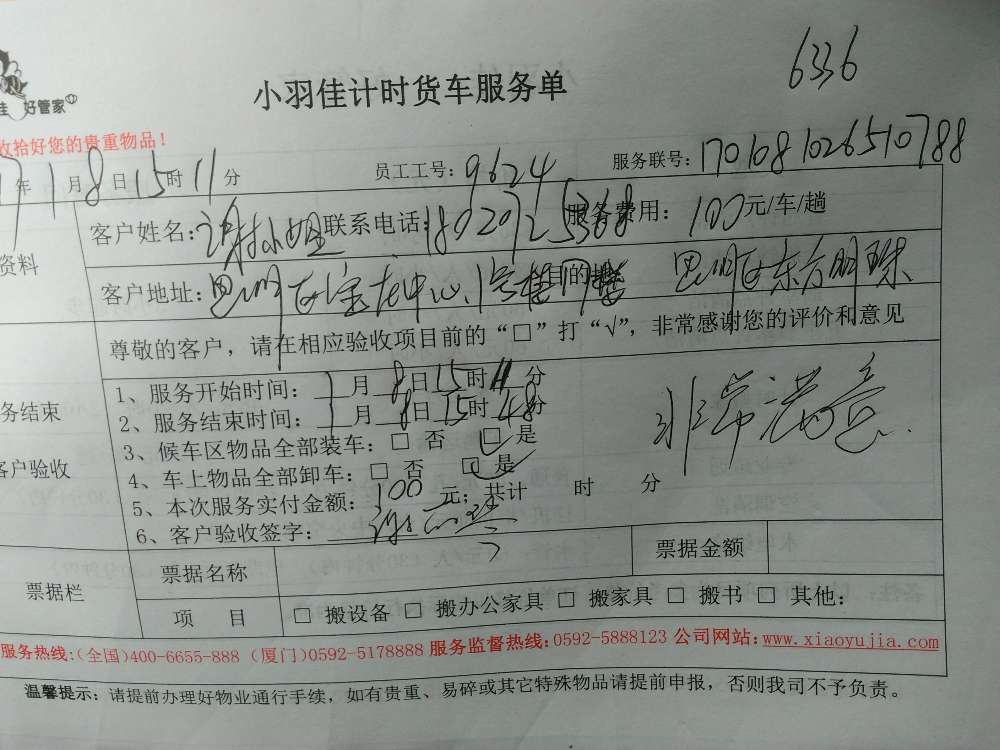 6336
小羽佳计时货车服务单
佳 好管家
收拾好您的贵重物品！
17年1月8日15时11分 员工工号：9624 服务联号：1701081026510788
资料
客户姓名：谢小姐 联系电话：18020725368 服务费用：100元/车/趟
客户地址：思明区宝龙中心1号楼 目的地 思明区东方明珠
尊敬的客户，请在相应验收项目前的“□”打“√”，非常感谢您的评价和意见
务结束
客户验收
1、服务开始时间：1月8日15时11分
2、服务结束时间：1月8日15时48分
3、候车区物品全部装车：□ 否 □ 是
4、车上物品全部卸车：□ 否 □ 是
5、本次服务实付金额：100元；共计 时 分
6、客户验收签字：
非常满意
票据栏
票据名称 票据金额
项 目 □ 搬设备 □ 搬办公家具 □ 搬家具 □ 搬书 □ 其他：
服务热线：（全国）400-6655-888 （厦门）0592-5178888 服务监督热线：0592-5888123 公司网站：www.xiaoyujia.com
温馨提示：请提前办理好物业通行手续，如有贵重、易碎或其它特殊物品请提前申报，否则我司不予负责。